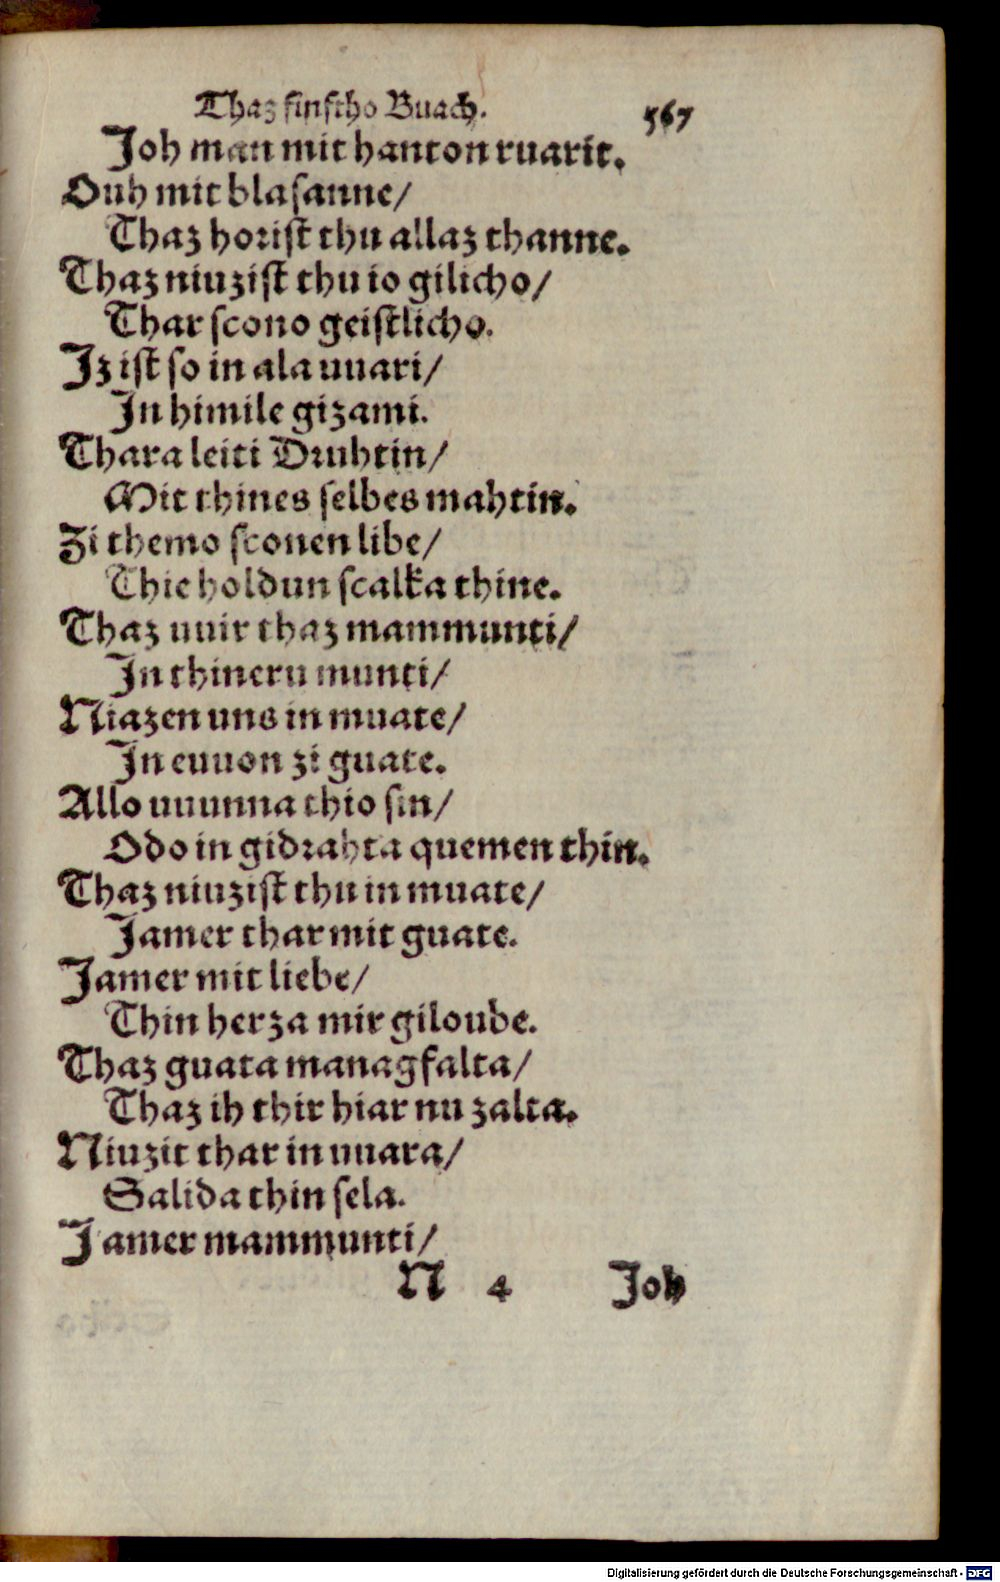 Thaz finftho Buach. 567
Joh man mit hanton ruarit.
Ouh mit blasanne/
Thaz horist thu allaz thanne.
Thaz niuzist thu io gilicho/
Thar scono geistlicho.
Jz ist so in ala uuari/
In himile gizami.
Thara leiti Druhtin/
Mit thines selbes mahtin.
Zi themo sconen libe/
Thie holdun scalka thine.
Thaz uuir thaz mammunti/
In thineru munti/
Niazen uns in muate/
In euuon zi guate.
Allo uuunna thio sin/
Odo in gidrahta quemen thin.
Thaz niuzist thu in muate/
Jamer thar mit guate.
Jamer mit liebe/
Thin herza mir giloube.
Thaz guata managfalta/
Thaz ih thir hiar nu zalta.
Niuzit thar in uuara/
Salida thin sela.
Jamer mammunti/
N 4 Joh
Digitalisierung gefördert durch die Deutsche Forschungsgemeinschaft - DFG